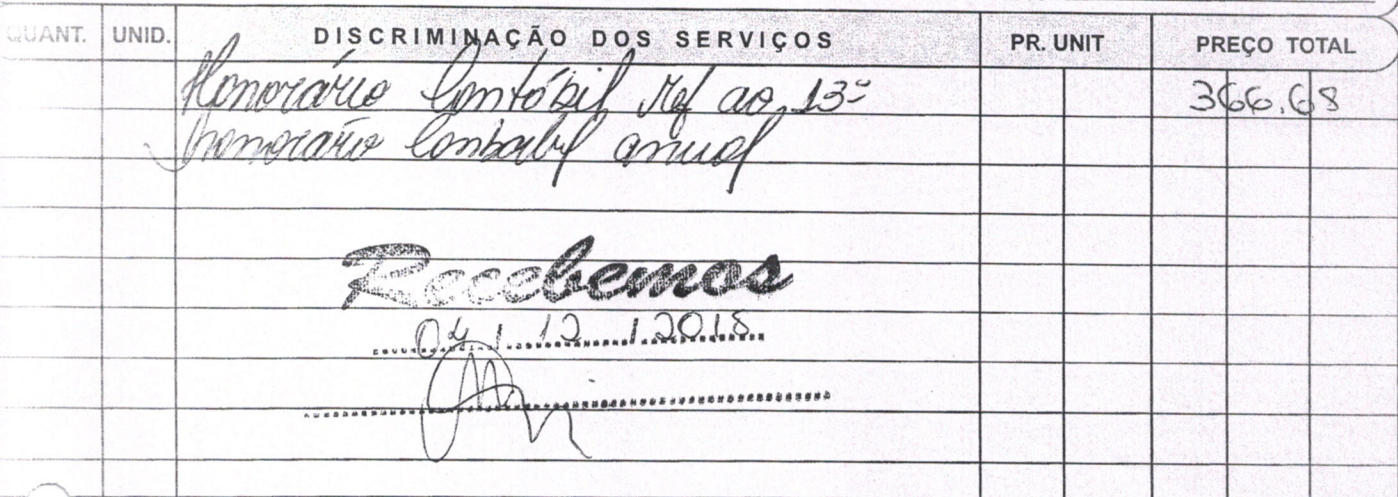 QUANT. UNID. DISCRIMINAÇÃO DOS SERVIÇOS PR. UNIT PREÇO TOTAL
Honorário Contábil Ref ao 13º 366.68
honorário Contabil anual
Recebemos
04 / 12 / 2018.